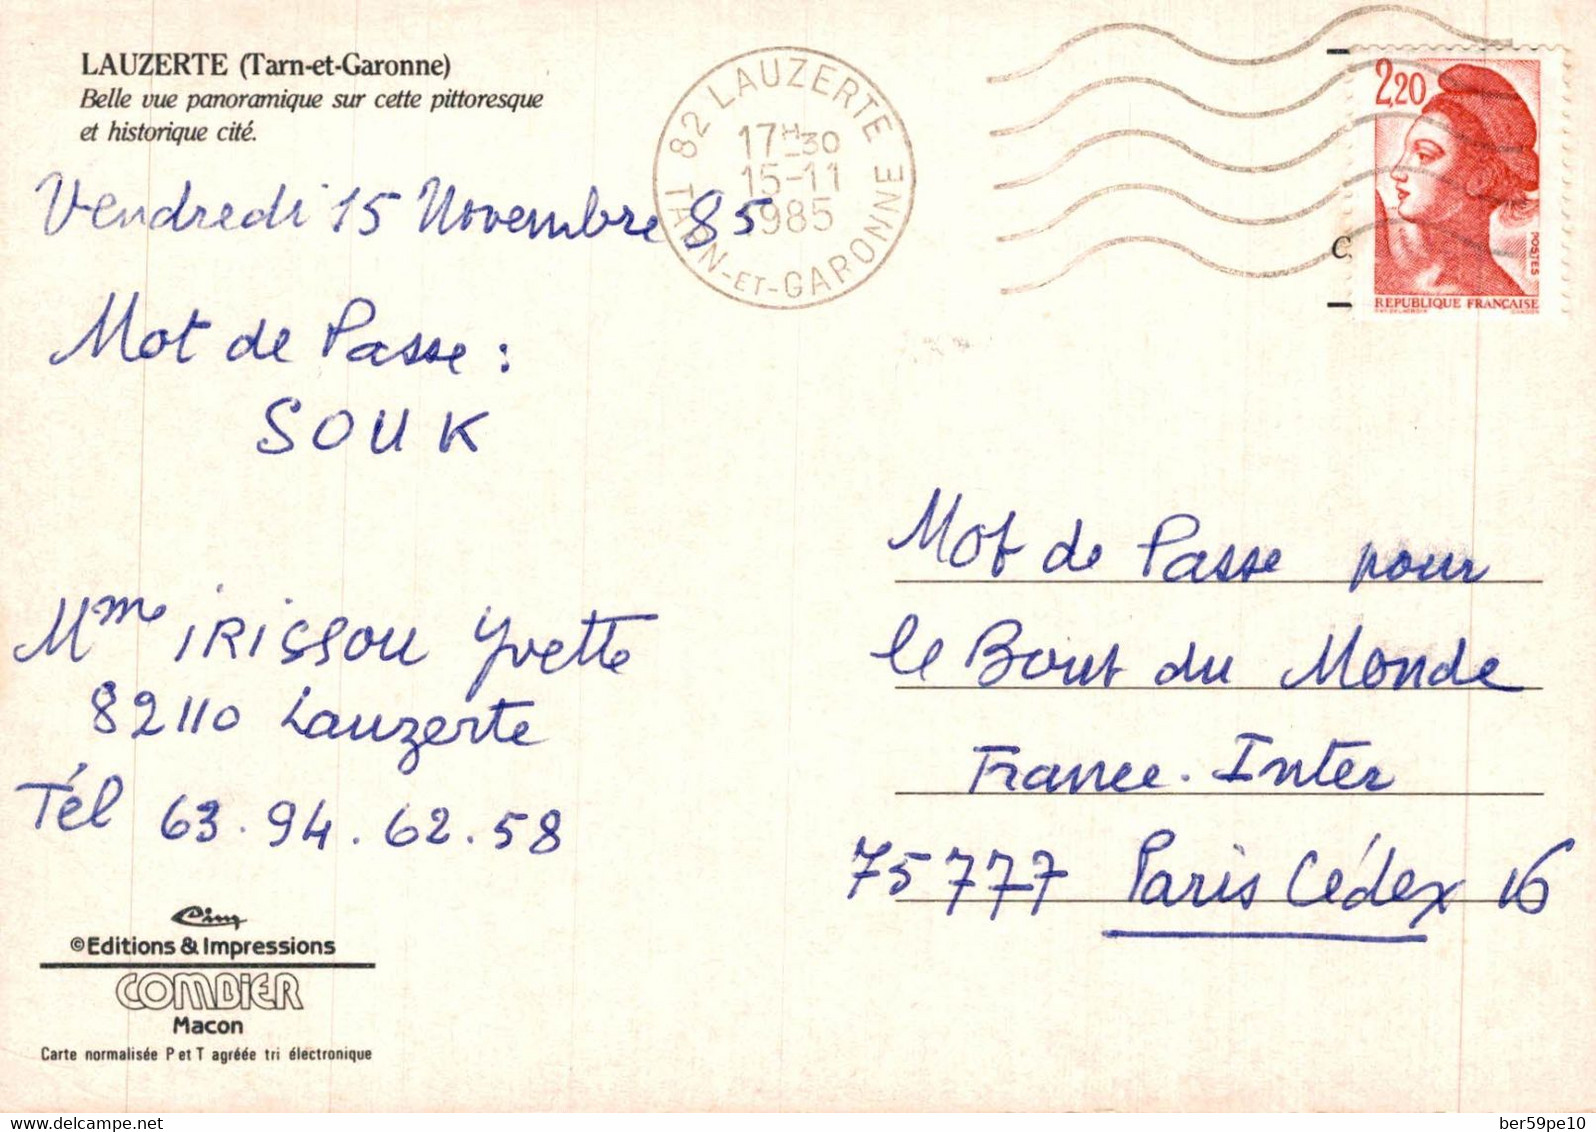 LAUZERTE (Tarn-et-Garonne)
Belle vue panoramique sur cette pittoresque
et historique cité.
82 LAUZERTE
17H30
15-11
1985
TARN-ET-GARONNE
2,20
POSTES
REPUBLIQUE FRANÇAISE
C
Vendredi 15 Novembre 85
Mot de Passe :
SOUK
Mme IRISSOU Yvette
82110 Lauzerte
Tél 63.94.62.58
Mot de Passe pour
le Bout du Monde
France-Inter
75777 Paris Cédex 16
Cim
©Editions & Impressions
COMBIER
Macon
Carte normalisée P et T agréée tri électronique
www.delcampe.net
ber59pe10